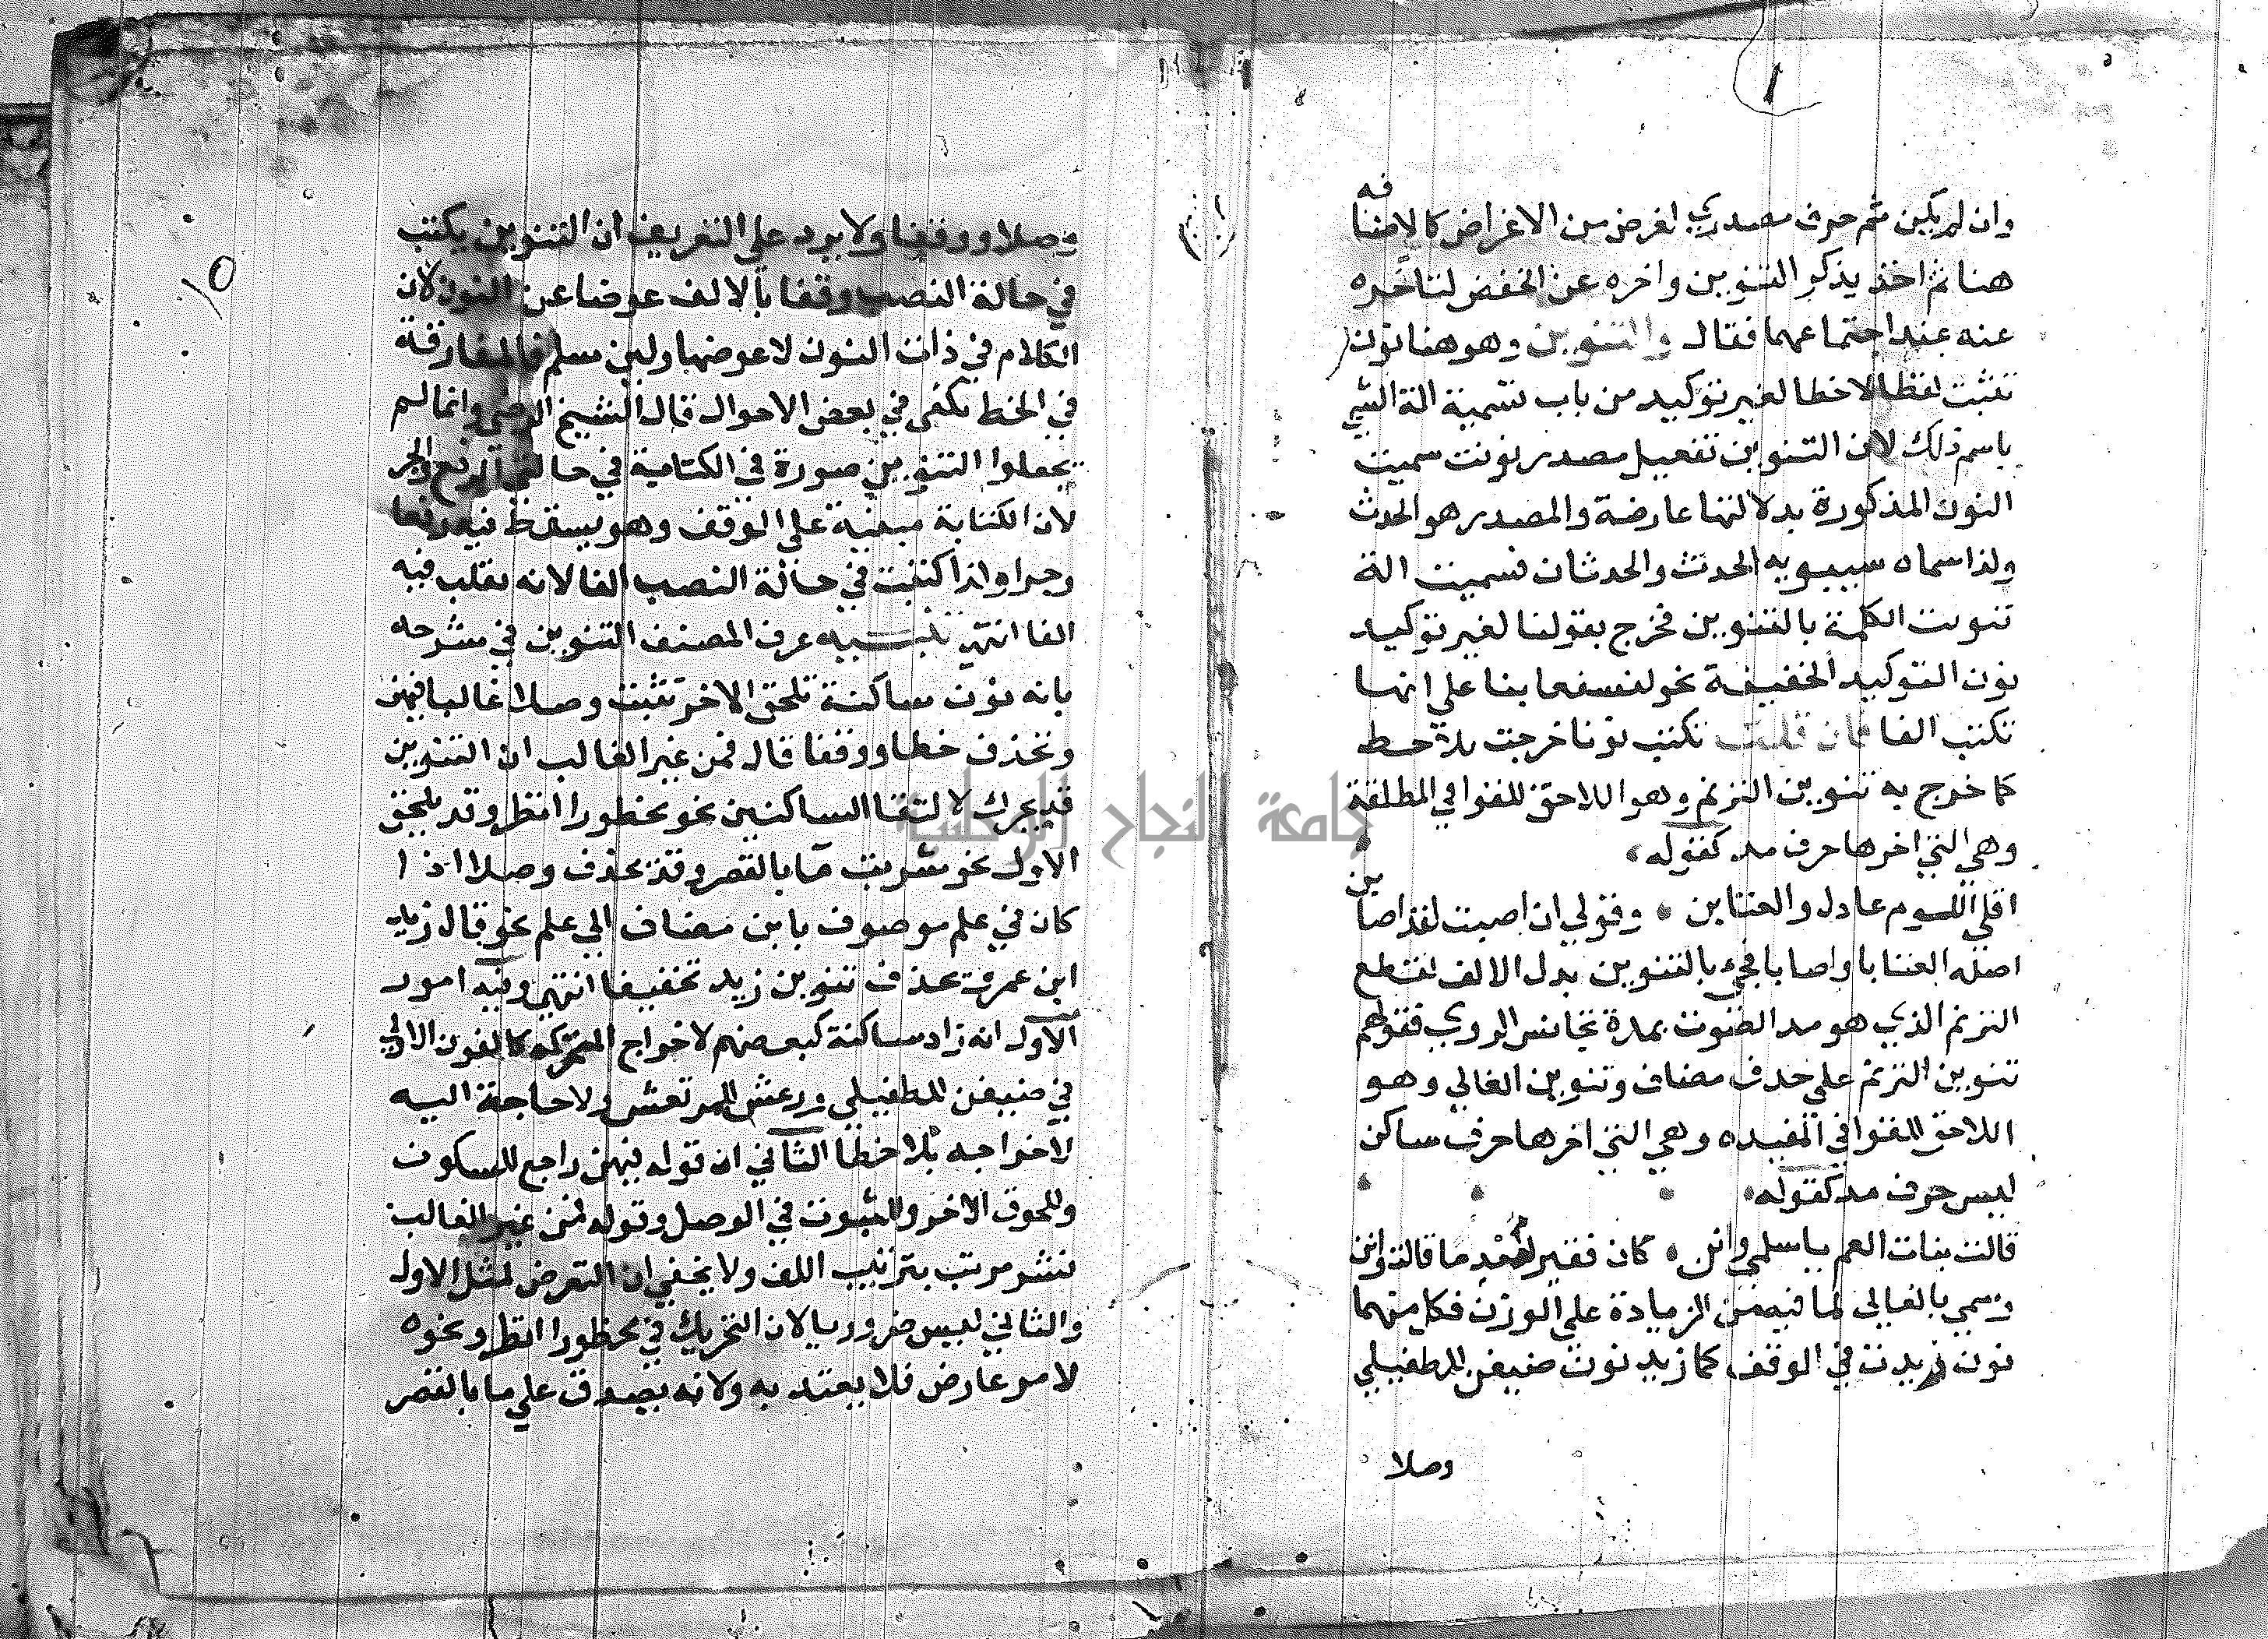 وان لم يكن ثم حرف مصدري لغرض من الاغراض كالامتنا
هنا ثم اخذ يذكر التنوين واخره عن الخفض لتاخره
عنه عند اجتماعهما فقال والتنوين وهو هنا نون
تثبت لفظا لاخطا لغير توكيد من باب تسمية الة الشي
باسم ذلك لان التنوين تفعيل مصدر نونت سميت
النون المذكورة بدلالتها عارضة والمصدر هو الحدث
ولذا سماه سيبويه الحدث والحدثان فسميت الة
تنوين الكلمة بالتنوين فخرج بقولنا لغير توكيد
نون التوكيد الخفيفة نحو لنسفعا بنا على انها
تكتب الفا فان قلت تكتب نونا خرجت بلا خط
كما خرج به تنوين الترنم وهو اللاحق للقوافي المطلقة
وهي التي اخرها حرف مد كقوله
اقلي اللوم عاذل والعتابن وقولي ان اصبت لقد اصابن
اصله العتابا واصابا فجئ بالتنوين بدل الالف لقطع
الترنم الذي هو مد الصوت بمدة تجانس الروي فقولهم
تنوين الترنم على حذف مضاف وتنوين الغالي وهو
اللاحق للقوافي المقيده وهي التي اخرها حرف ساكن
ليس حرف مد كقوله
قالت بنات العم ياسلمى وانن كان فقير معدما قالت وانن
وسمي بالغالي لما فيه من الزيادة على الوزن فكل منهما
نون زيدت في الوقف كما زيد نون ضيفن للطفيلي
وصلا
وصلا ووقفا ولا يرد على التعريف ان التنوين يكتب
في حالة النصب وقفا بالالف عوضا عن النون لان
الكلام في ذات النون لا عوضها ولئن سلم فالمفارقة
في الخط تكفي في بعض الاحوال قال الشيخ الرضي وانما لم
يجعلوا التنوين صورة في الكتابة في حالتي الرفع والجر
لان الكتابة مبنية على الوقف وهو يسقط فيه رفعا
وجرا وانما كتبت في حالة النصب الفا لانه تقلب فيه
الفا انتهى تنبيه عرف المصنف التنوين في شرحه
بانه نون ساكنة تلحق الاخر تثبت وصلا غالبا فيهن
وتحذف خطا ووقفا قال فمن غير الغالب ان التنوين
قد يحرك لالتقا الساكنين نحو محظورا انظر وقد يلحق
الاول نحو شربت ما بالقصر وقد يحذف وصلا اذا
كان في علم موصوف بابن مضاف الى علم نحو قال زيد
ابن عمرو بحذف تنوين زيد تخفيفا انتهى وفيه امور
الاول انه زاد ساكنة كبعضهم لاخراج المتحركه كالنون الاولى
في ضيفن للطفيلي ورعشن للمرتعش ولا حاجة اليه
لاخراجه بلا خطا الثاني ان قوله فيهن راجع للسكون
وللحوق الاخر وللثبوت في الوصل وقوله فمن غير الغالب
نشر مرتب بترتيب اللف ولا يخفى ان التعرض لمثل الاول
والثاني ليس ضروريا لان التحريك في محظورا انظر ونحوه
لامر عارض فلا يعتد به ولانه يصدق على ما بالقصر